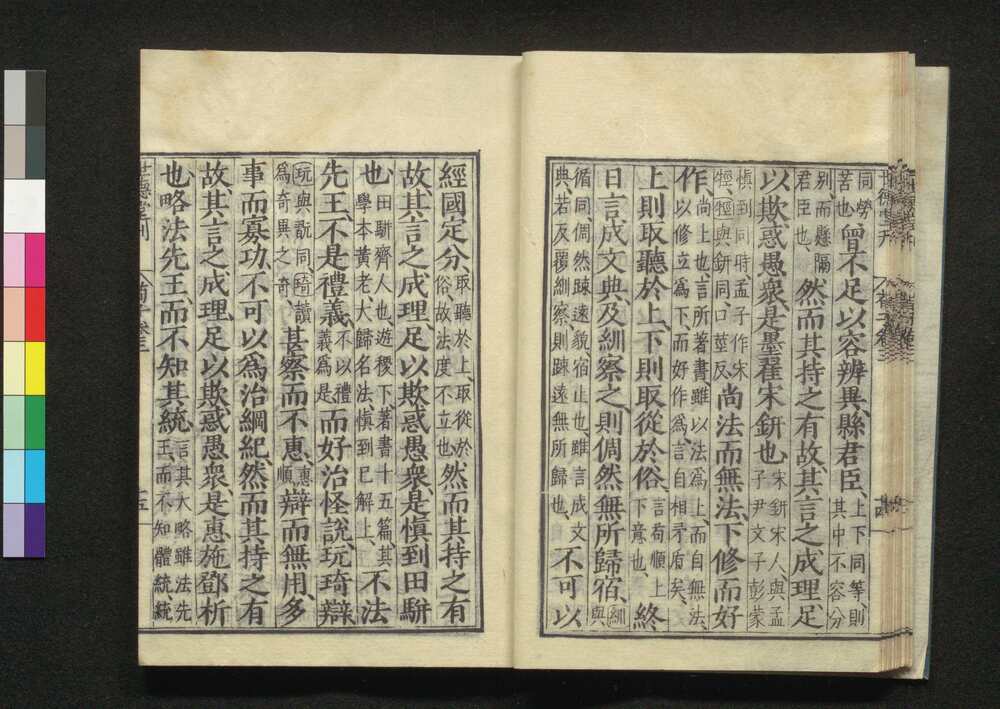 同勞苦也、曾不足以容辨異、縣君臣、上下同等、則其中不容分
別而懸隔君臣也、然而其持之有故、其言之成理、足
以欺惑愚衆、是墨翟宋鈃也、宋鈃宋人與孟子尹文子彭蒙
慎到同時、孟子作宋牼牼與鈃同口莖反尚法而無法、下修而好
作、尚上也、言所著書雖以法爲上、而自無法、以修立爲下、而好作爲、言自相矛盾矣、
上則取聽於上、下則取從於俗、言苟順上下意也、終
日言成文典、及紃察之、則倜然無所歸宿、紃與
循同、倜然踈遠貌、宿止也、雖言成文典、若反覆紃察、則踈遠無所歸也、不可以
經國定分、取聽於上、取從於俗、故法度不立也、然而其持之有
故、其言之成理、足以欺惑愚衆、是慎到田駢
也、田駢齊人也、遊稷下、著書十五篇、其學本黃老、大歸名法、慎到已解上、不法
先王、不是禮義、不以禮義爲是而好治怪說、玩琦辯、
玩與翫同、琦讀爲奇異之奇、甚察而不惠、惠順辯而無用、多
事而寡功、不可以爲治綱紀、然而其持之有
故、其言之成理、足以欺惑愚衆、是惠施鄧析
也、略法先王、而不知其統、言其大略雖法先王、而不知體統、統
世德堂刊
荀子卷三
十五